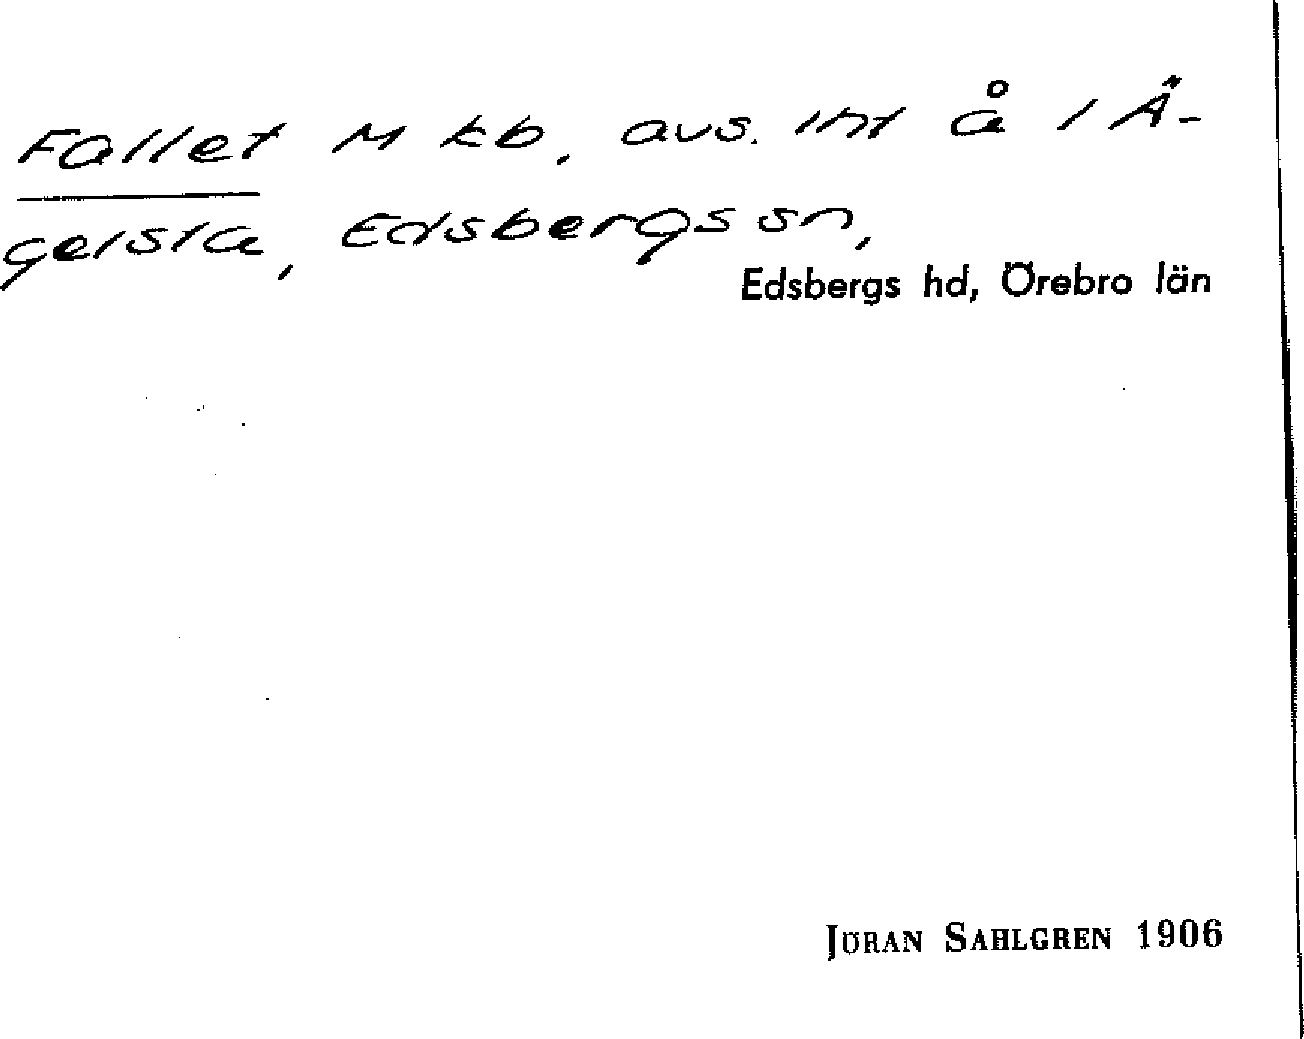 Fallet M kb, avs. int å 1 Ä-
gelsta, Edsbergs sn,
Edsbergs hd, Örebro län
JÖRAN SAHLGREN 1906